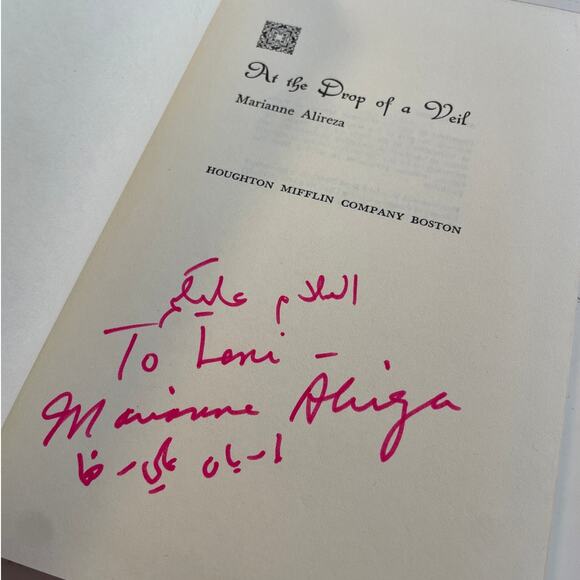 At the Drop of a Veil
Marianne Alireza
HOUGHTON MIFFLIN COMPANY BOSTON
السلام عليكم
To Leni -
Marianne Alireza
علي رضا